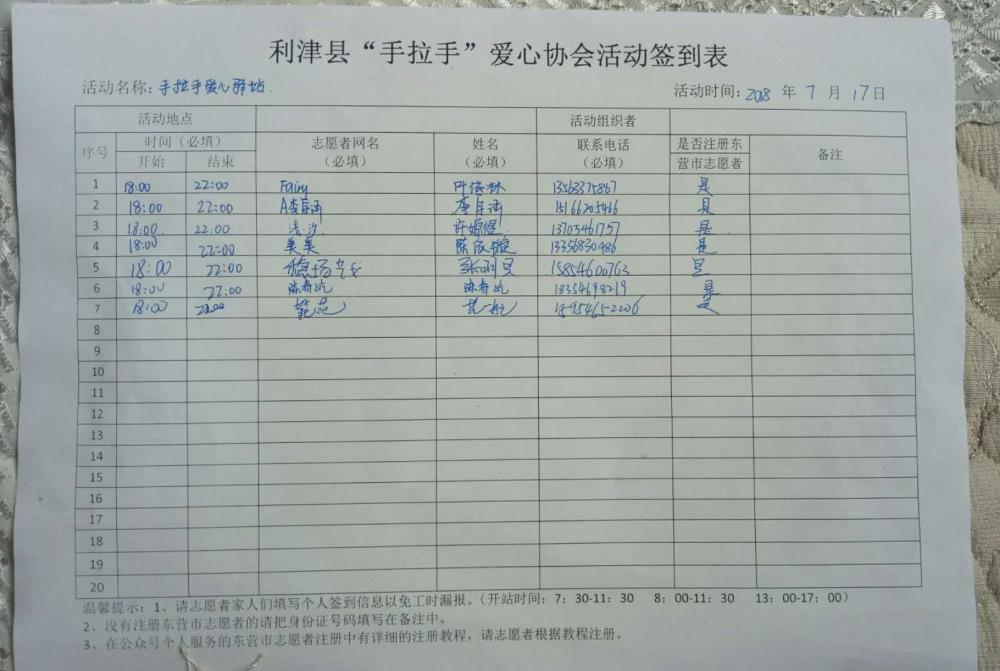 利津县“手拉手”爱心协会活动签到表
活动名称: 手拉手爱心驿站. 活动时间: 2018 年 7 月 17 日
活动地点 活动组织者
序号 时间（必填） 志愿者网名 姓名 联系电话 是否注册东 备注
开始 结束 （必填） （必填） （必填） 营市志愿者
1 18:00 22:00 Fairy 13563375867 是
2 18:00 22:00 15166205466 是
3 18:00 22:00 浅汐 13705461757 是
4 18:00 22:00 美美 13356830486 是
5 18:00 22:00 15854600763 是
6 18:00 22:00 18354698219 是
7 18:00 22:00 是
8
9
10
11
12
13
14
15
16
17
18
19
20
温馨提示：1、请志愿者家人们填写个人签到信息以免工时漏报。（开站时间：7：30-11：30 8：00-11：30 13：00-17：00）
2、没有注册东营市志愿者的请把身份证号码填写在备注中。
3、在公众号个人服务的东营市志愿者注册中有详细的注册教程，请志愿者根据教程注册。